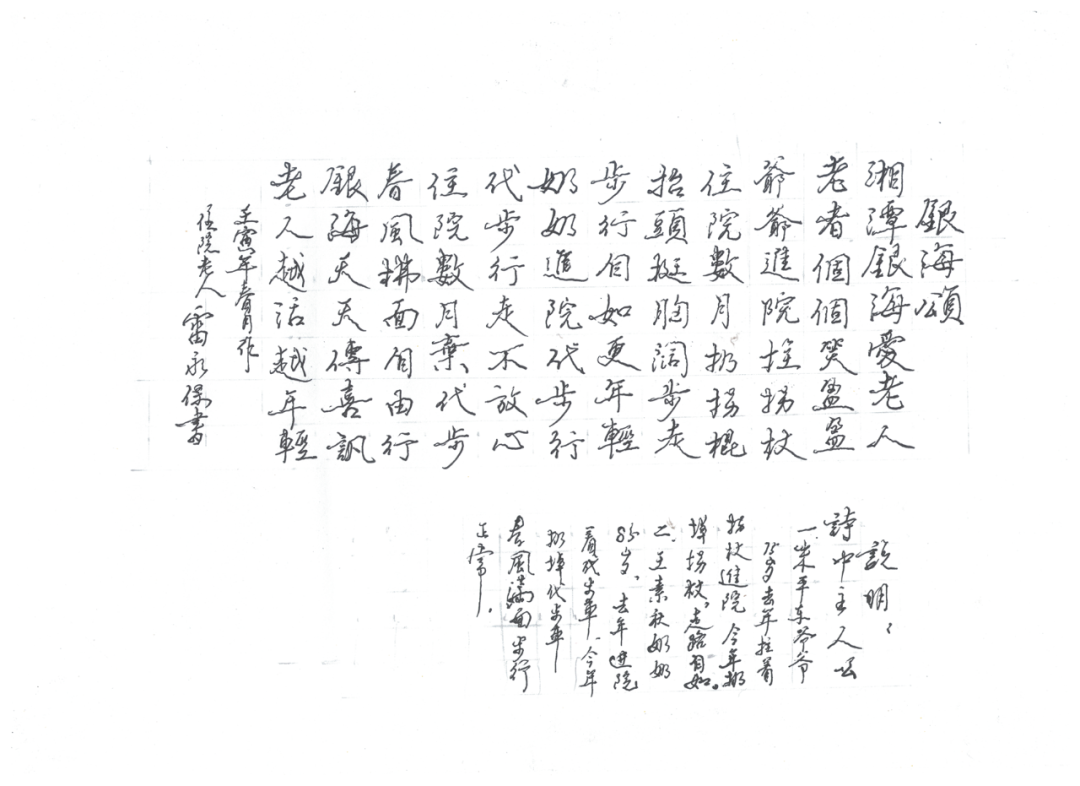 銀海頌
湘潭銀海愛老人
老者個個笑盈盈
爺爺進院拄拐杖
住院數月扔拐棍
抬頭挺胸闊步走
步行自如更年輕
奶奶進院代步行
代步行走不放心
住院數月棄代步
春風拂面自由行
銀海天天傳喜訊
老人越活越年輕
壬寅年春月作
住院老人雷永保書
說明：
詩中主人公
一、朱平东爷爷
75岁去年拄着
拐杖进院今年扔
掉拐杖，走路自如。
二、王素秋奶奶
85岁、去年进院
着代步车、今年
扔掉代步车
春风满面步行
正常。